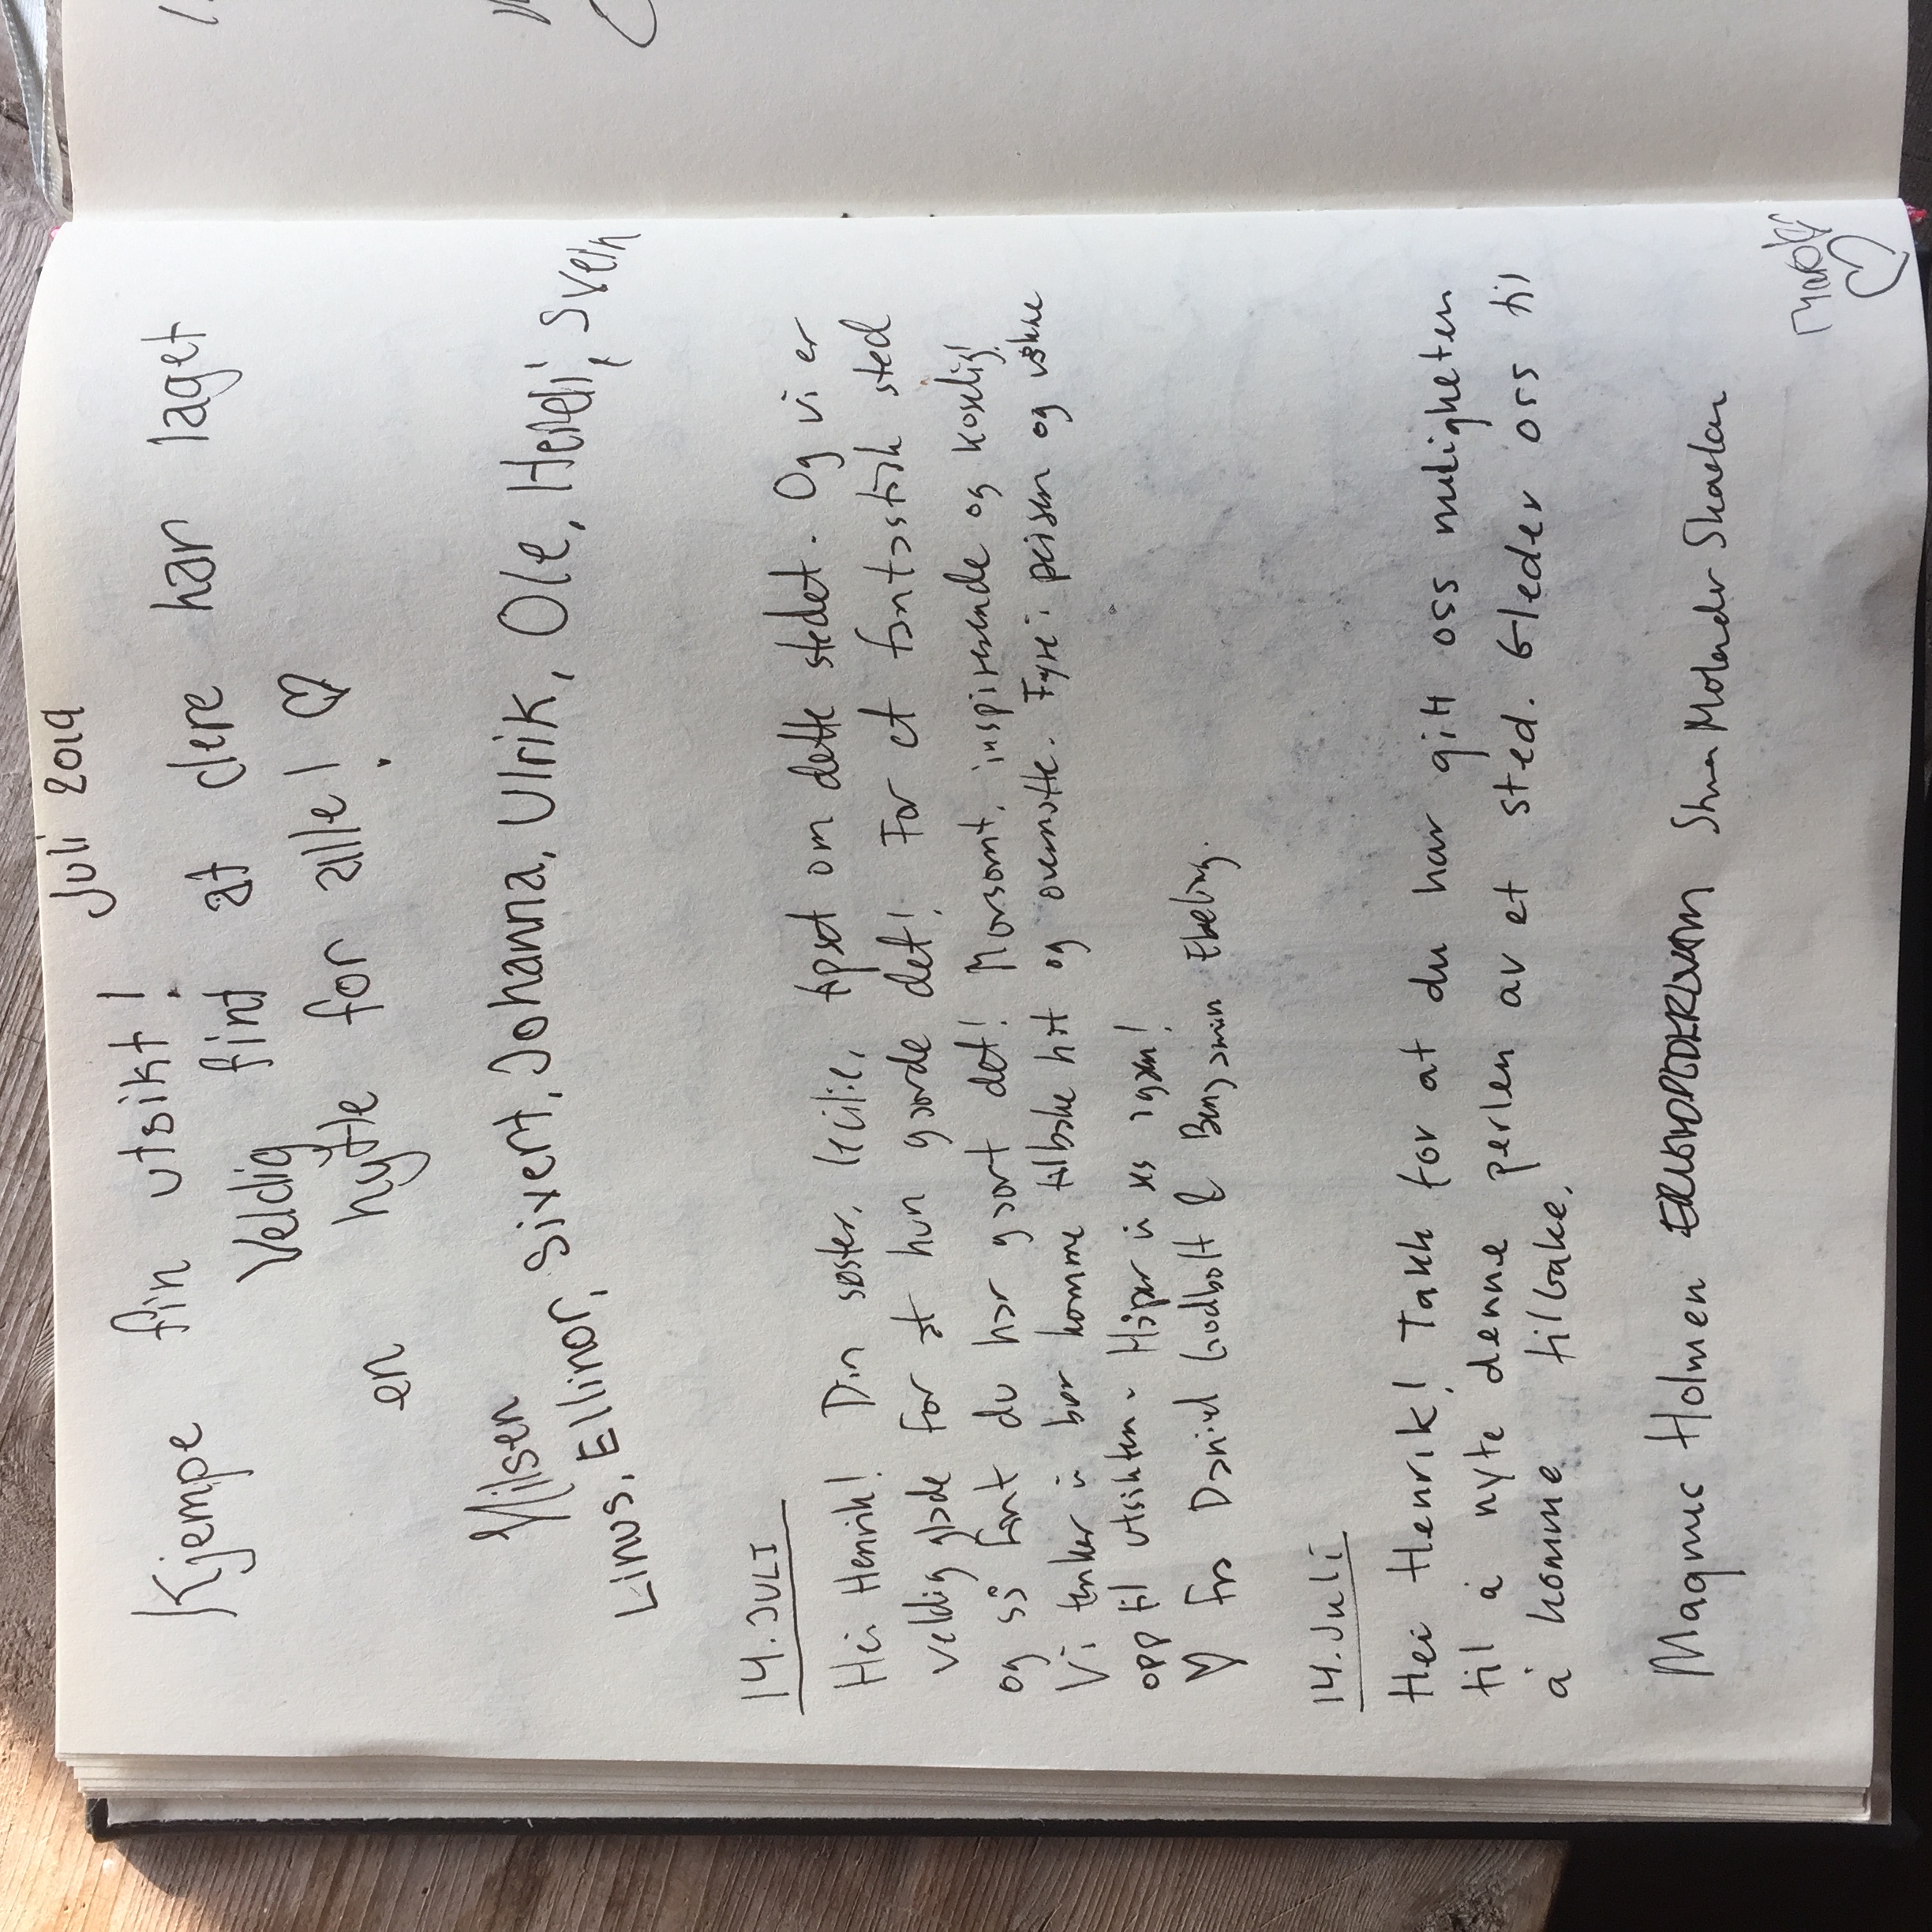 Juli 2019
Kjempe fin utsikt!
Veldig fint at dere har laget
en hytte for alle! ♡
Hilsen
Linus, Ellinor, Sixert, Johanna, Ulrik, Ole, Heidi, Svein
14. JULI
Hei Henrik! Din søster, Cecilie, tipset om dette stedet. Og vi er
veldig glade for at hun gjorde det! For et fantastisk sted
og så fint du har gjort det! Morsomt, inspirerende og koselig!
Vi tenker vi bør komme tilbake hit og overnatte. Fyre i peisen og våkne
opp til utsikten. Håper vi ses igjen!
♡ fra Daniel Godbolt & Bengjamin Ebeling.
14. Juli
Hei Henrik! Takk for at du har gitt oss muligheten
til å nyte denne perlen av et sted. Gleder oss til
å komme tilbake.
Magnus Holmen Stina Molander Skavlan